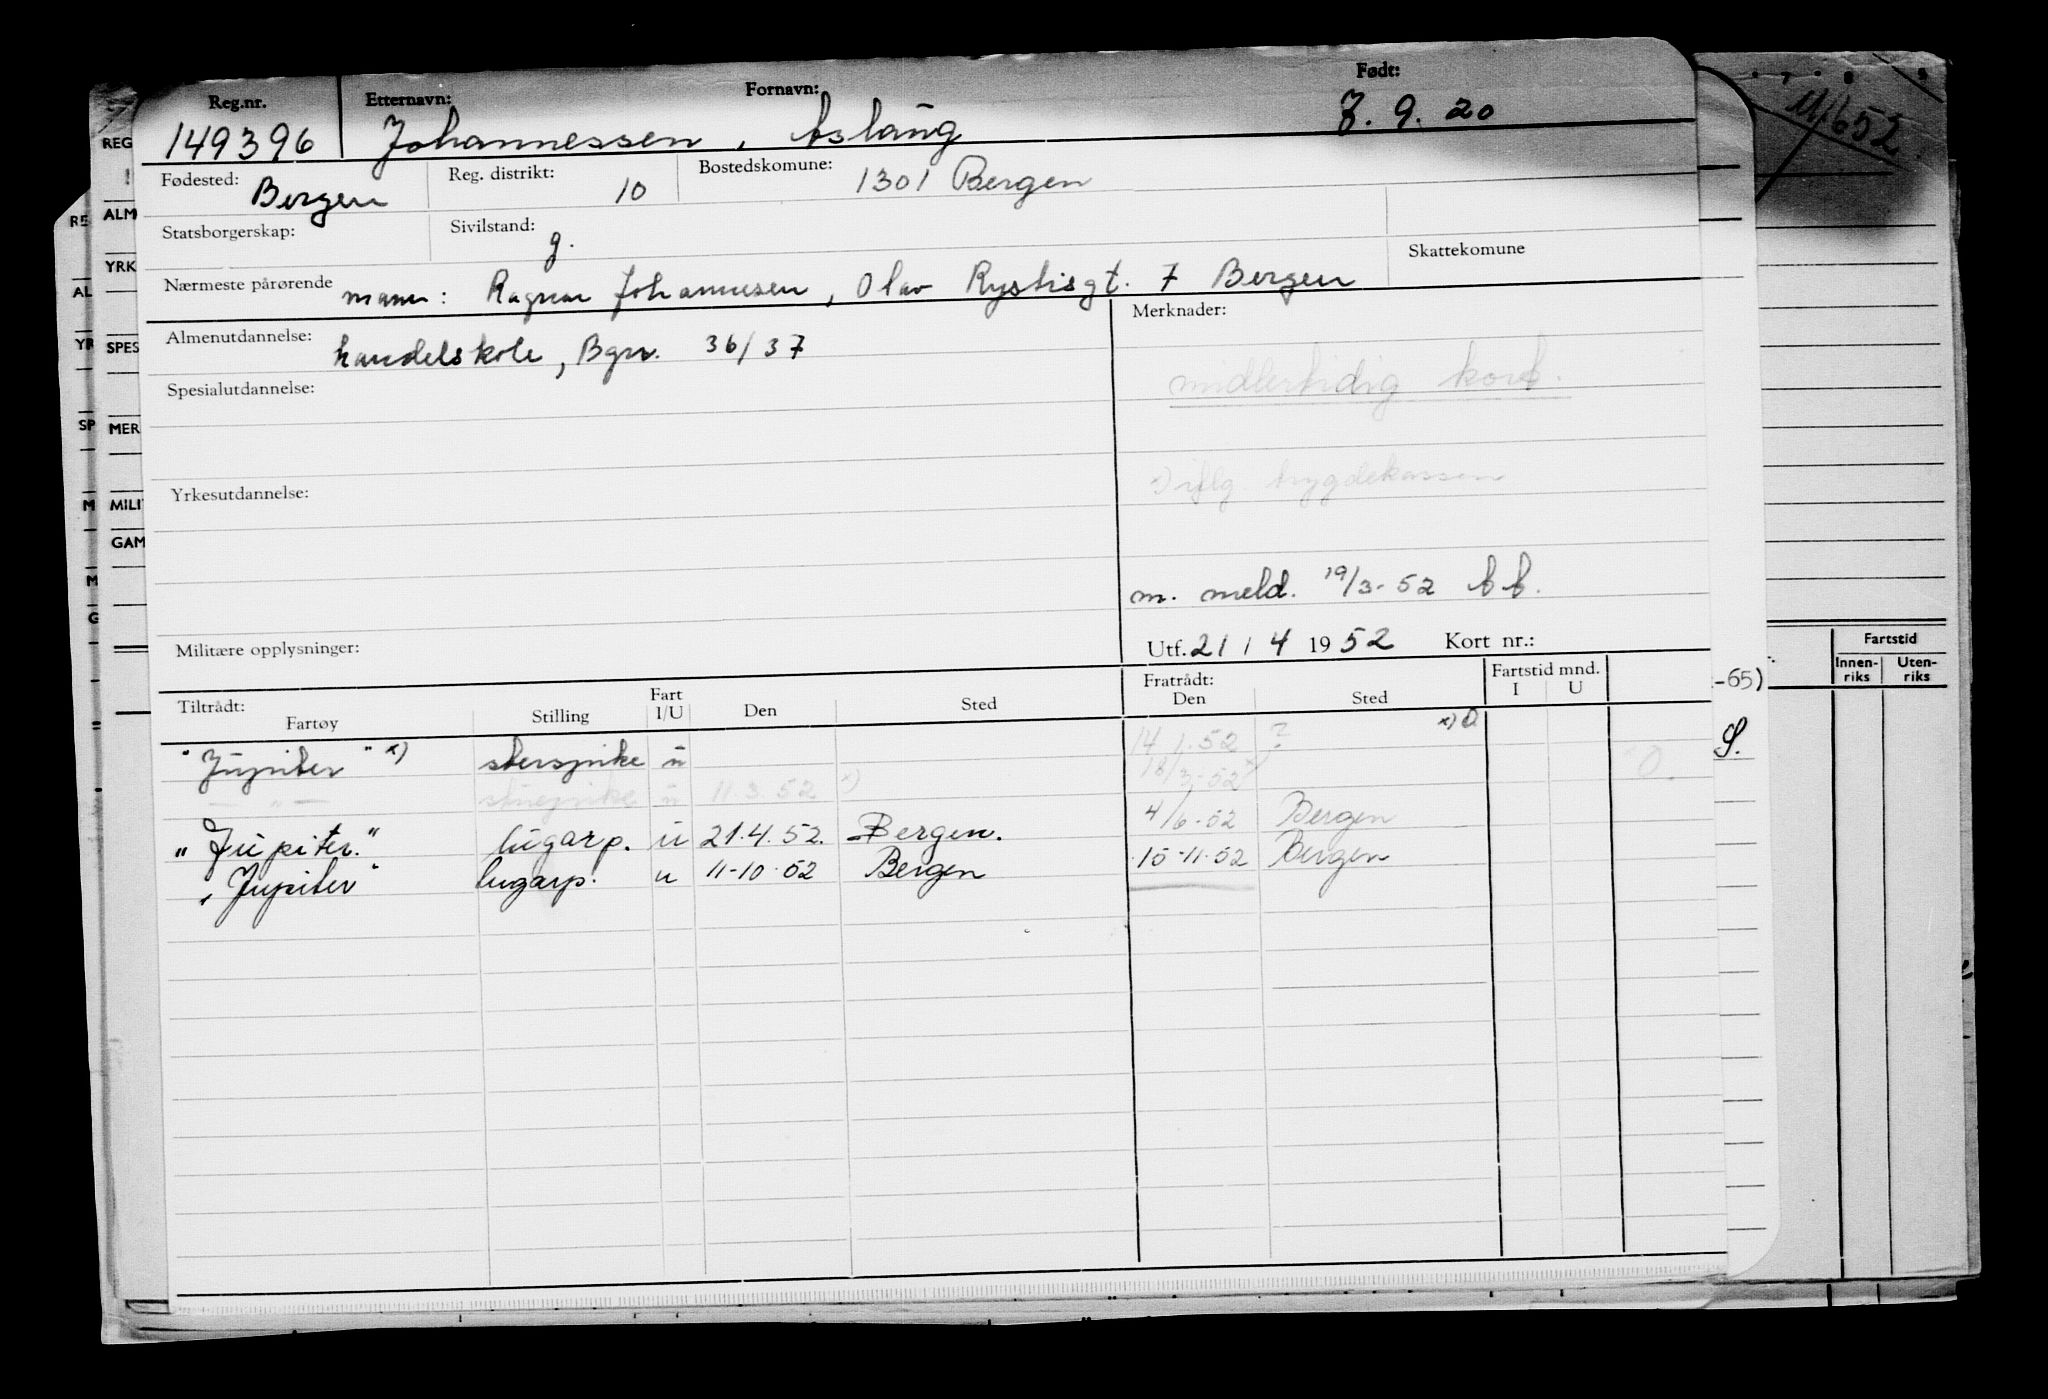 Reg.nr. Etternavn: Fornavn: Født:
149396 Johannessen, Aslaug 7. 9. 20
Fødested: Bergen Reg. distrikt: 10 Bostedskomune: 1301 Bergen
Statsborgerskap: Sivilstand: g.
Skattekomune
Nærmeste pårørende mann: Ragnar Johannesen, Olav Rystisgt. 7 Bergen
Almenutdannelse: handelskole, Bgn. 36/37
Merknader:
Spesialutdannelse:
midlertidig kort.
Yrkesutdannelse:
trygdekassen
m. meld. 19/3-52
Militære opplysninger:
Utf. 21/4 1952 Kort nr.:
Tiltrådt: Fartøy Stilling Fart I/U Den Sted Fratrådt: Den Sted Fartstid mnd. I U
"Jupiter" x) u 14.1.52 ? x) 0
— " — u 11.3.52 x) 18/3-52 x) 0.
"Jupiter." lugarp. u 21.4.52. Bergen. 4/6-52 Bergen
"Jupiter" lugarp. u 11-10-52 Bergen 15-11-52 Bergen
REG
ALM
YRK
SPES
MER
MILI
GAM
RE
AL
YR
SP
M
M
G
7 8 9
Fartstid
Innen-riks Uten-riks
-65)
S.